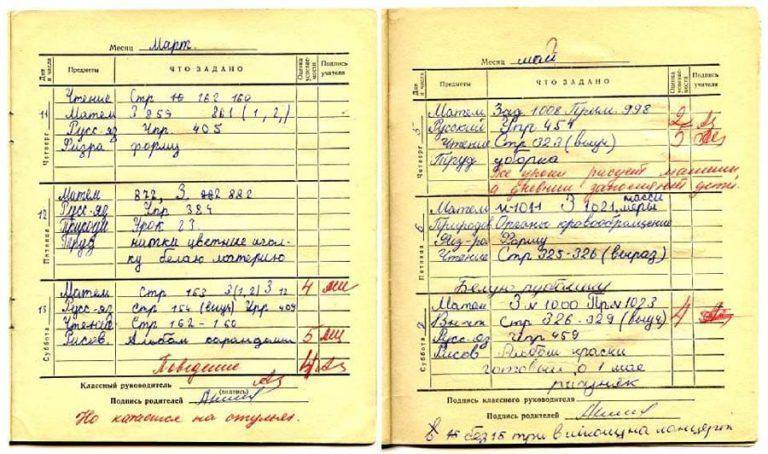 Месяц Март
Дни и числа Предметы ЧТО ЗАДАНО Оценка успеваемости Подпись учителя
11 Четверг
Чтение Стр 162 160
Матем З 259 261 (1, 2,)
Русс-яз Упр. 405
Физра форму
12 Пятница
Матем 872, З 882
Русс-яз Упр 384
Природ Урок 23
Труд нитки цветные игол-
ку белаю материю
13 Суббота
Матем Стр 163 3(1,2) 4
Русс-яз Стр 154 (выуч) Упр 409
Чтение Стр 162-160
Рисов. Альбом карандаши 5
Поведение 4
Классный руководитель
(подпись)
Подпись родителей
Но катаемся на стульях.
Месяц май
Дни и числа Предметы ЧТО ЗАДАНО Оценка успеваемости Подпись учителя
5 Четверг
Матем Зад 1008 Прим 998 2
Русский Упр 454 5
Чтение Стр 323 (выуч)
Труд уборка
Все уроки рисует машины,
а дневник заполняют дети.
6 Пятница
Матем N-1011 З 1021 массы меры
Природов Органы кровообращение
Физ-ра Форму
Чтение Стр 325-326 (выраз)
Белую рубашку
Суббота
Матем З N 1000 Прм 1023
Вн-чт Стр 326-329 (выуч) 4
Русс-яз Упр 459
Рисов Альбом краски
готовый о 1 мае
рисунок
Подпись классного руководителя
Подпись родителей
В без 15 три в школу на концерт